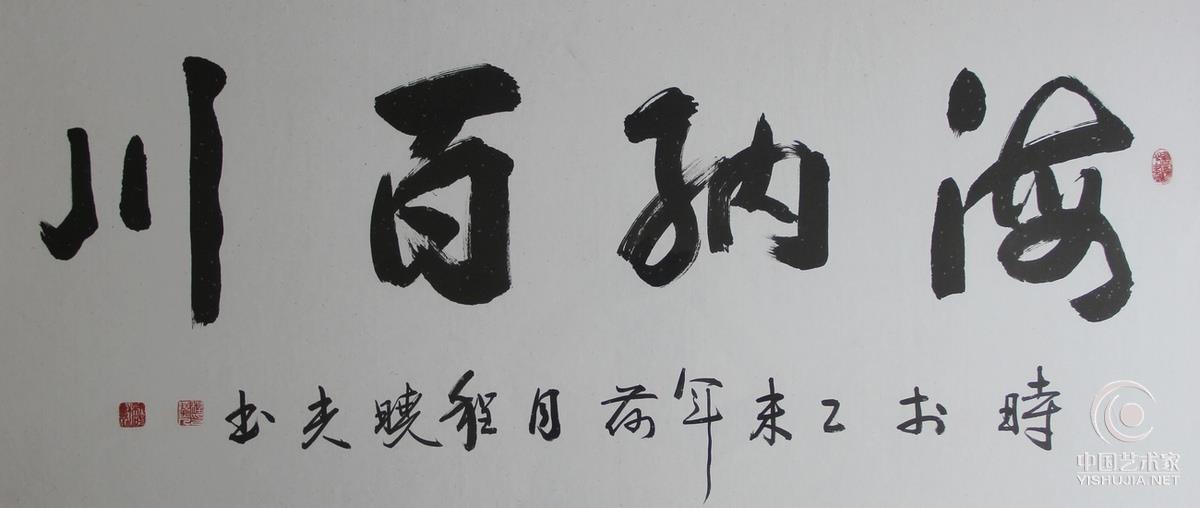 海納百川
時於乙未年荷月程曉光书
中国艺术家
YISHUJIA.NET